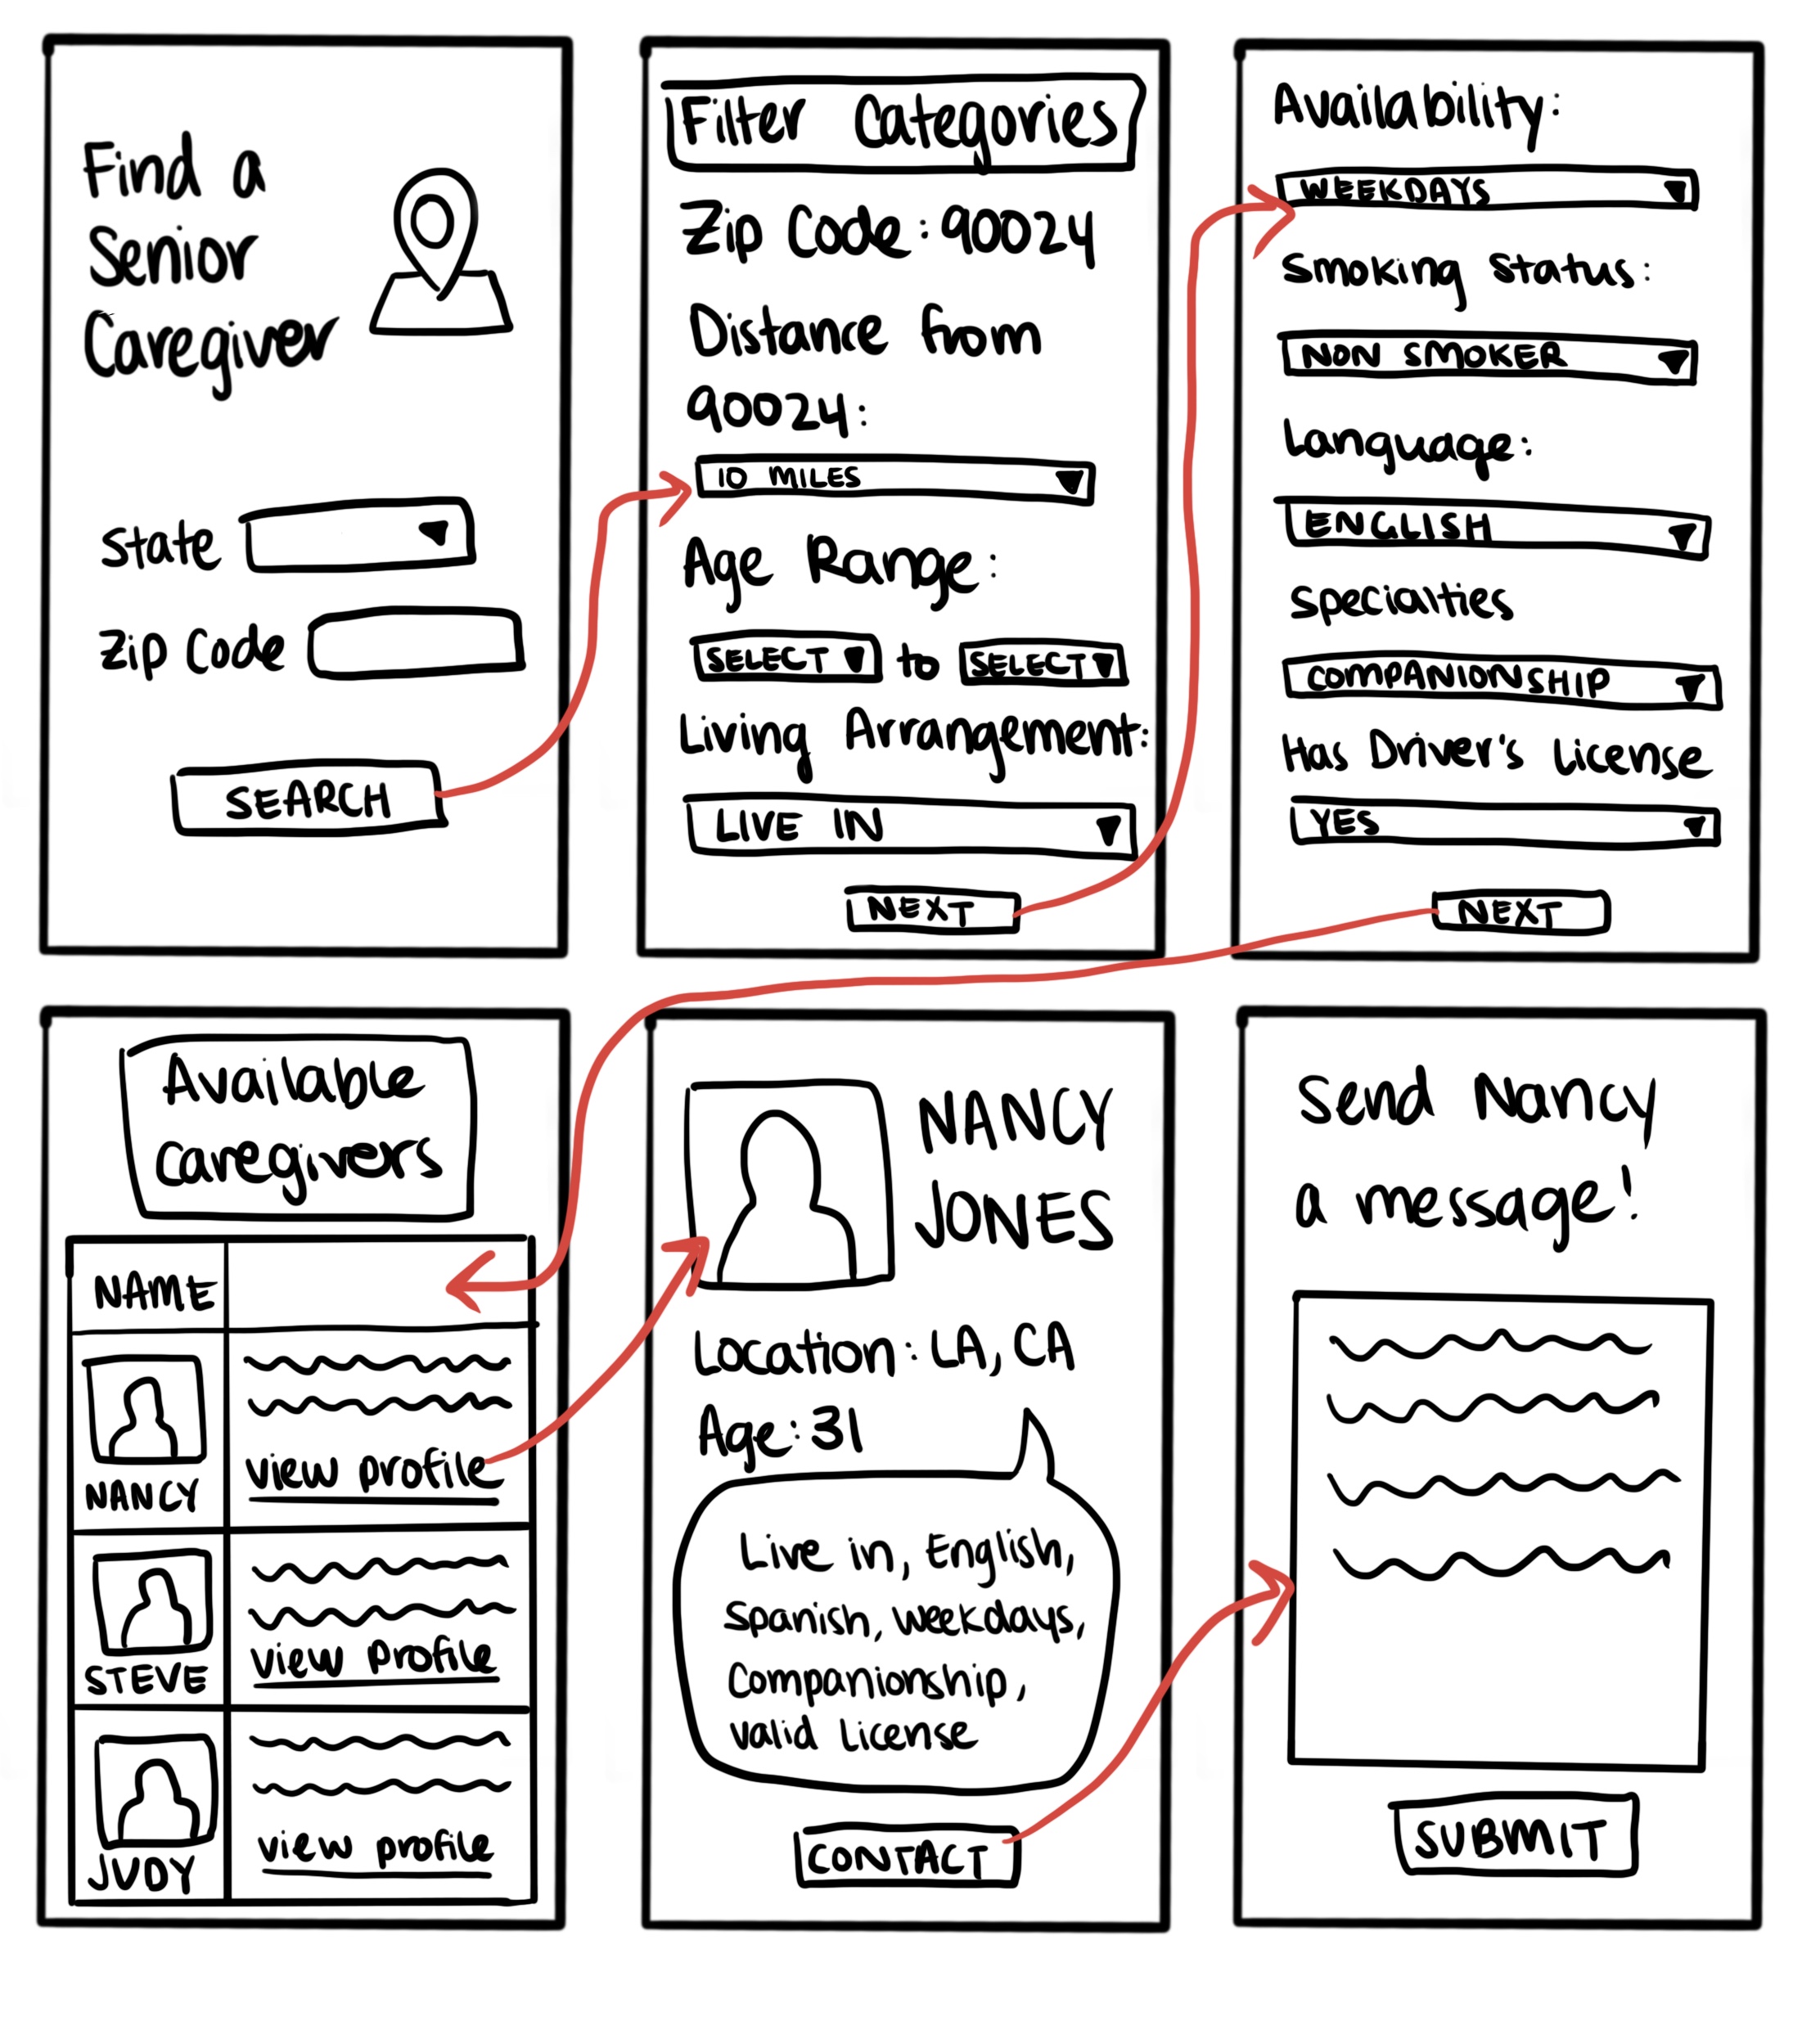 Find a
Senior
Caregiver
State
Zip Code
SEARCH
Filter Categories
Zip Code: 90024
Distance from
90024:
10 MILES
Age Range:
SELECT to SELECT
Living Arrangement:
LIVE IN
NEXT
Availability:
WEEKDAYS
Smoking Status:
NON SMOKER
Language:
ENGLISH
Specialties
COMPANIONSHIP
Has Driver's License
YES
NEXT
Available
Caregivers
NAME
view profile
NANCY
view profile
STEVE
view profile
JUDY
NANCY
JONES
Location: LA, CA
Age: 31
Live in, English,
Spanish, weekdays,
Companionship,
Valid License
CONTACT
Send Nancy
a message!
SUBMIT